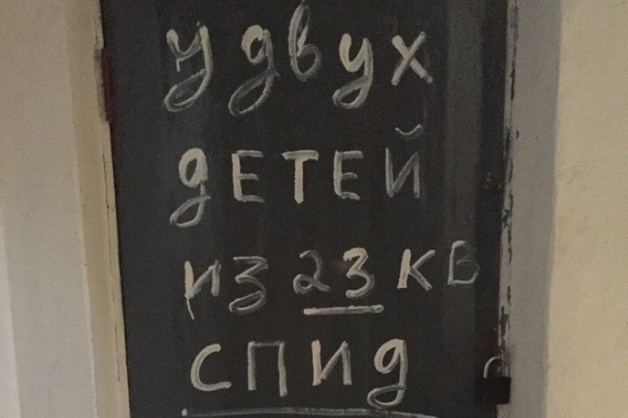 у двух
детей
из 23 кв
спид